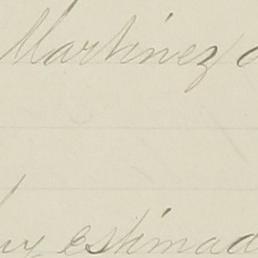 Martinez
estimad